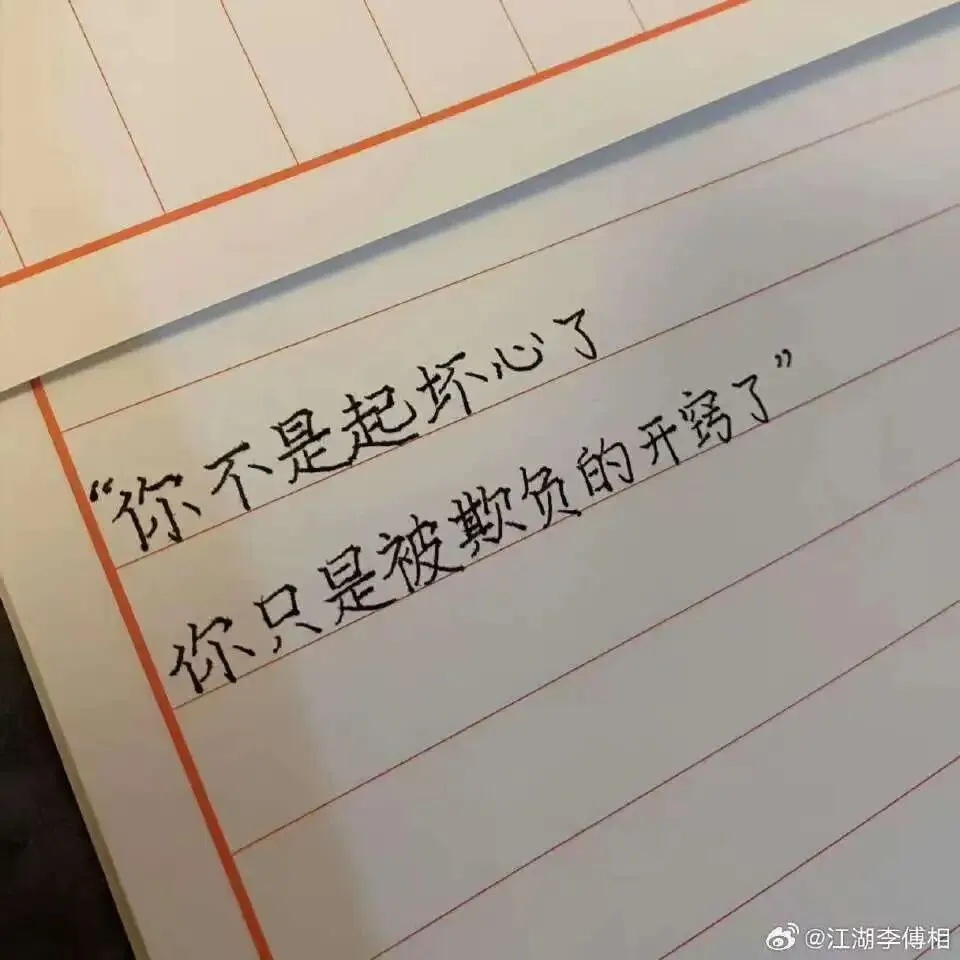 “你不是起坏心了
你只是被欺负的开窍了”
@江湖李傅相